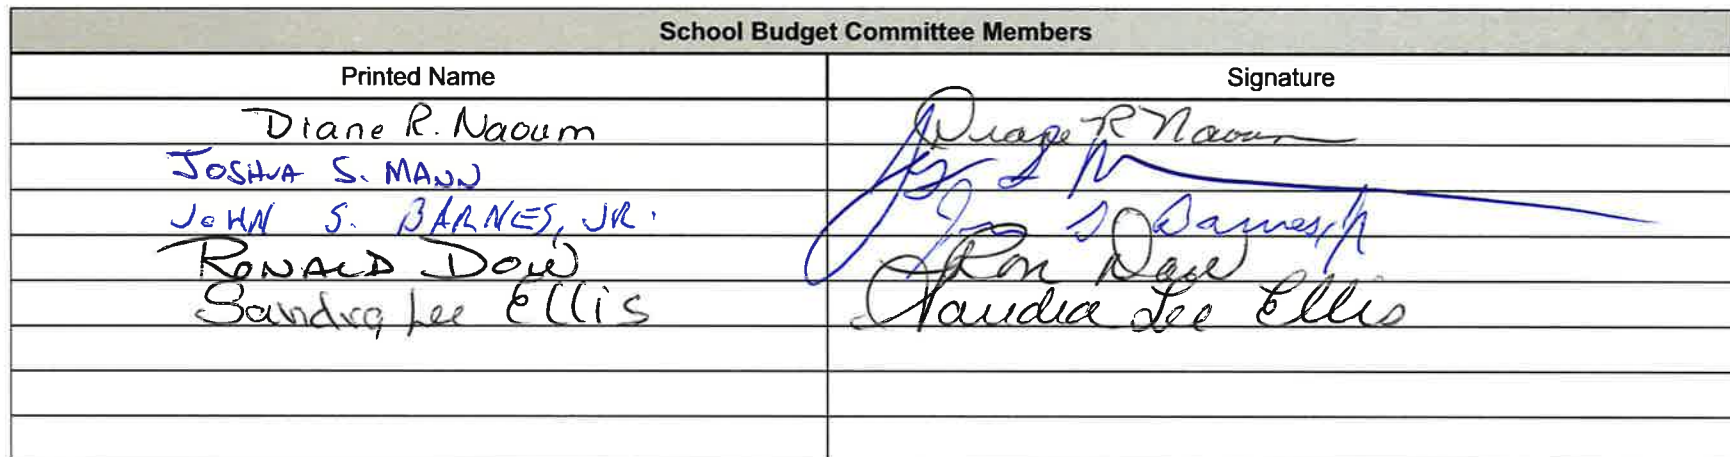 School Budget Committee Members
Printed Name Signature
Diane R. Naoum Diane R Naoum
JOSHUA S. MANN
JOHN S. BARNES, JR. S Barnes, Jr
RONALD DOW Ron Dow
Sandra Lee Ellis Sandra Lee Ellis